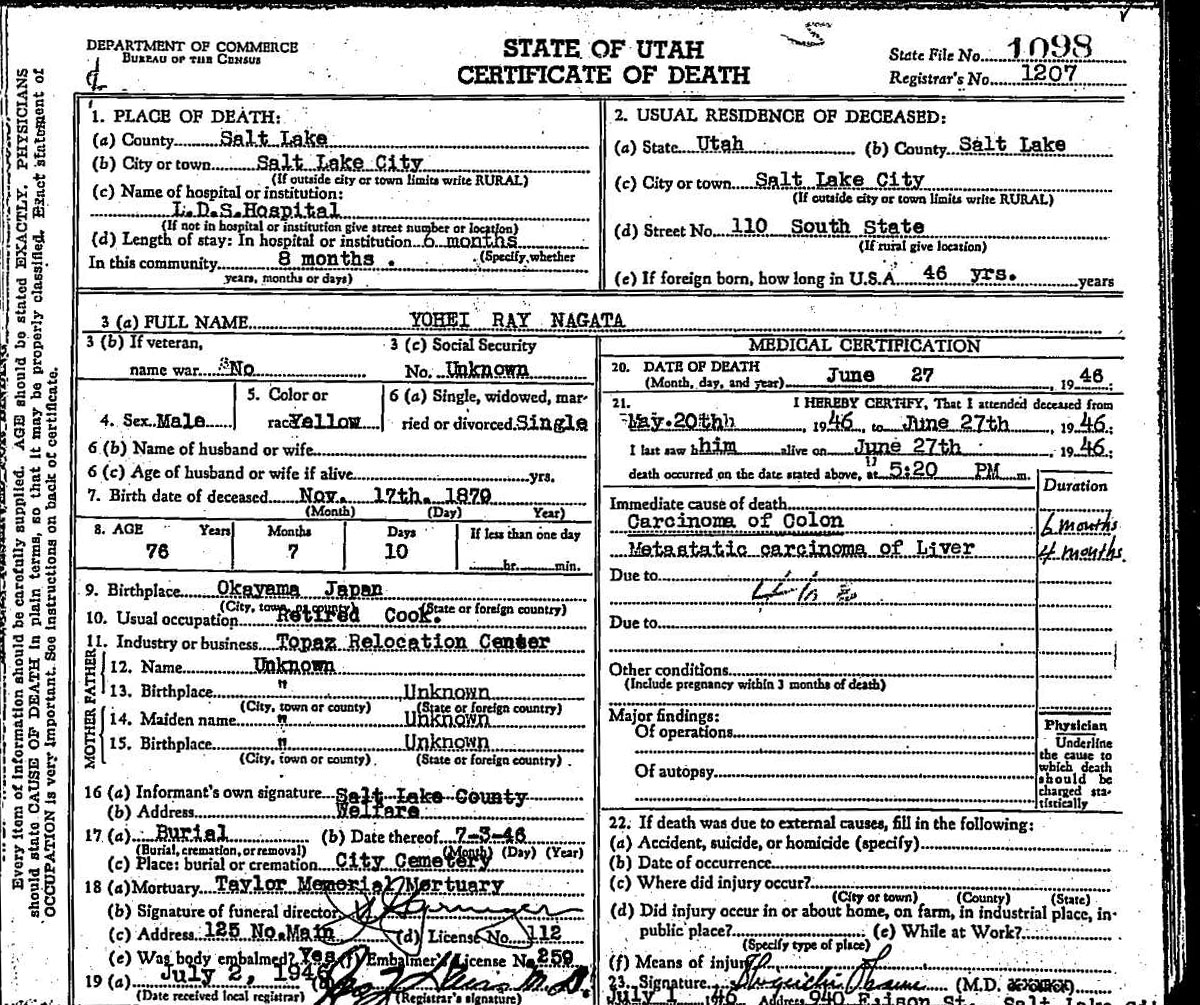 DEPARTMENT OF COMMERCE
BUREAU OF THE CENSUS
STATE OF UTAH
CERTIFICATE OF DEATH
State File No. 1098
Registrar's No. 1207
Every item of information should be carefully supplied. AGE should be stated EXACTLY. PHYSICIANS
should state CAUSE OF DEATH in plain terms, so that it may be properly classified. Exact statement of
OCCUPATION is very important. See instructions on back of certificate.
1. PLACE OF DEATH:
(a) County Salt Lake
(b) City or town Salt Lake City
(If outside city or town limits write RURAL)
(c) Name of hospital or institution:
L.D.S.Hospital
(If not in hospital or institution give street number or location)
(d) Length of stay: In hospital or institution 6 months
(Specify whether
In this community 8 months .
years, months or days)
2. USUAL RESIDENCE OF DECEASED:
(a) State Utah (b) County Salt Lake
(c) City or town Salt Lake City
(If outside city or town limits write RURAL)
(d) Street No. 110 South State
(If rural give location)
(e) If foreign born, how long in U.S.A. 46 yrs. years
3 (a) FULL NAME YOHEI RAY NAGATA
3 (b) If veteran,
name war No
3 (c) Social Security
No. Unknown
4. Sex Male
5. Color or
race Yellow
6 (a) Single, widowed, mar-
ried or divorced Single
6 (b) Name of husband or wife
6 (c) Age of husband or wife if alive yrs.
7. Birth date of deceased Nov. 17th. 1870
(Month) (Day) Year)
8. AGE Years Months Days If less than one day
76 7 10 hr. min.
9. Birthplace Okayama Japan
(City, town or county) (State or foreign country)
10. Usual occupation Retired Cook.
11. Industry or business Topaz Relocation Center
FATHER
12. Name Unknown
13. Birthplace " Unknown
(City, town or county) (State or foreign country)
MOTHER
14. Maiden name " Unknown
15. Birthplace " Unknown
(City, town or county) (State or foreign country)
16 (a) Informant's own signature Salt Lake County
(b) Address Welfare
17 (a) Burial (b) Date thereof 7-3-46
(Burial, cremation, or removal) (Month) (Day) (Year)
(c) Place: burial or cremation City Cemetery
18 (a) Mortuary Taylor Memorial Mortuary
(b) Signature of funeral director
(c) Address 125 No.Main (d) License No. 112
(e) Was body embalmed? Yes (f) Embalmer's License No. 259
19 (a) July 2, 1946 (b) M.D.
(Date received local registrar) (Registrar's signature)
MEDICAL CERTIFICATION
20. DATE OF DEATH
(Month, day, and year) June 27, 1946
21. I HEREBY CERTIFY, That I attended deceased from
May.20th, 1946, to June 27th, 1946.;
I last saw him alive on June 27th, 1946.;
death occurred on the date stated above, at 5:20 PM m.
Duration
Immediate cause of death
Carcinoma of Colon 6 months
Metastatic carcinoma of Liver 4 months.
Due to
Due to
Other conditions
(Include pregnancy within 3 months of death)
Major findings:
Of operations
Of autopsy
Physician
Underline
the cause to
which death
should be
charged sta-
tistically
22. If death was due to external causes, fill in the following:
(a) Accident, suicide, or homicide (specify)
(b) Date of occurrence
(c) Where did injury occur?
(City or town) (County) (State)
(d) Did injury occur in or about home, on farm, in industrial place, in-
public place? (e) While at Work?
(Specify type of place)
(f) Means of injury
23. Signature (M.D.
July 1 46 Address 940 St.